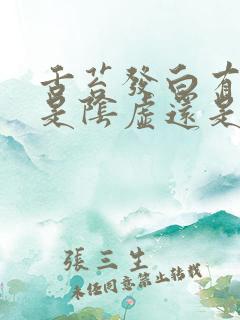 舌苔發白有
是陰虛還是
張三生
未經同意禁止轉載